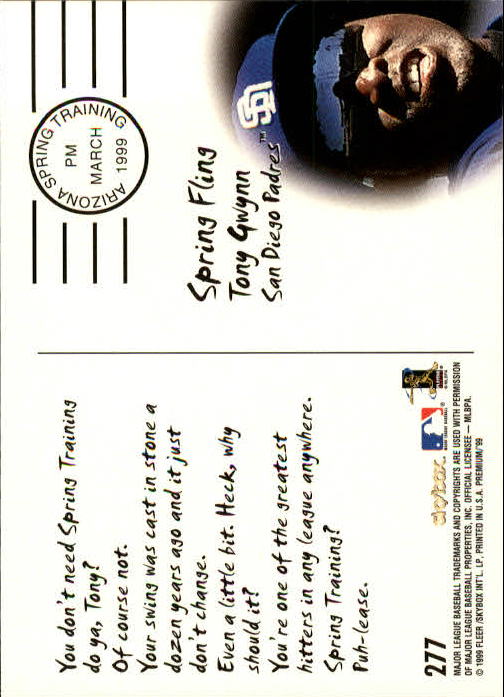 You don't need Spring Training
do ya, Tony?
Of course not.
Your swing was cast in stone a
dozen years ago and it just
don't change.
Even a little bit. Heck, why
should it?
You're one of the greatest
hitters in any league anywhere.
Spring Training?
Puh-lease.
ARIZONA SPRING TRAINING
PM
MARCH
1999
SD
Spring Fling
Tony Gwynn
San Diego Padres™
277
skybox
MAJOR LEAGUE BASEBALL TRADEMARKS AND COPYRIGHTS ARE USED WITH PERMISSION
OF MAJOR LEAGUE BASEBALL PROPERTIES, INC. OFFICIAL LICENSEE — MLBPA.
© 1999 FLEER /SKYBOX INT'L. LP. PRINTED IN U.S.A. PREMIUM/'99